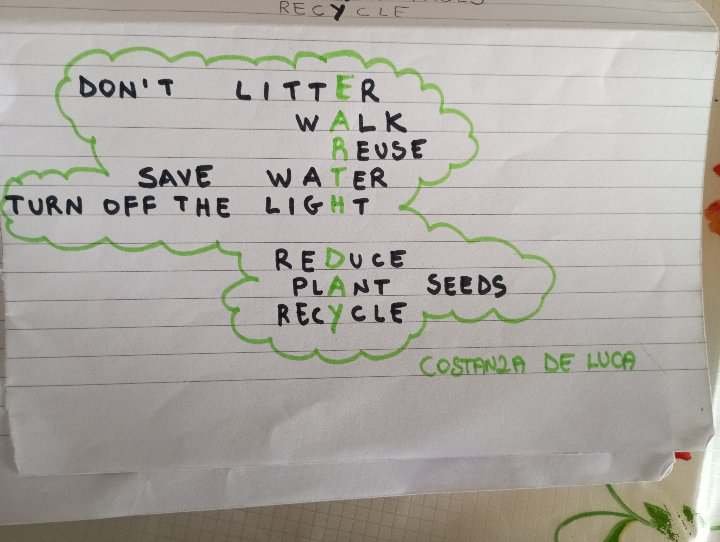 RECYCLE
DON'T LITTER
WALK
REUSE
SAVE WATER
TURN OFF THE LIGHT
REDUCE
PLANT SEEDS
RECYCLE
COSTANZA DE LUCA